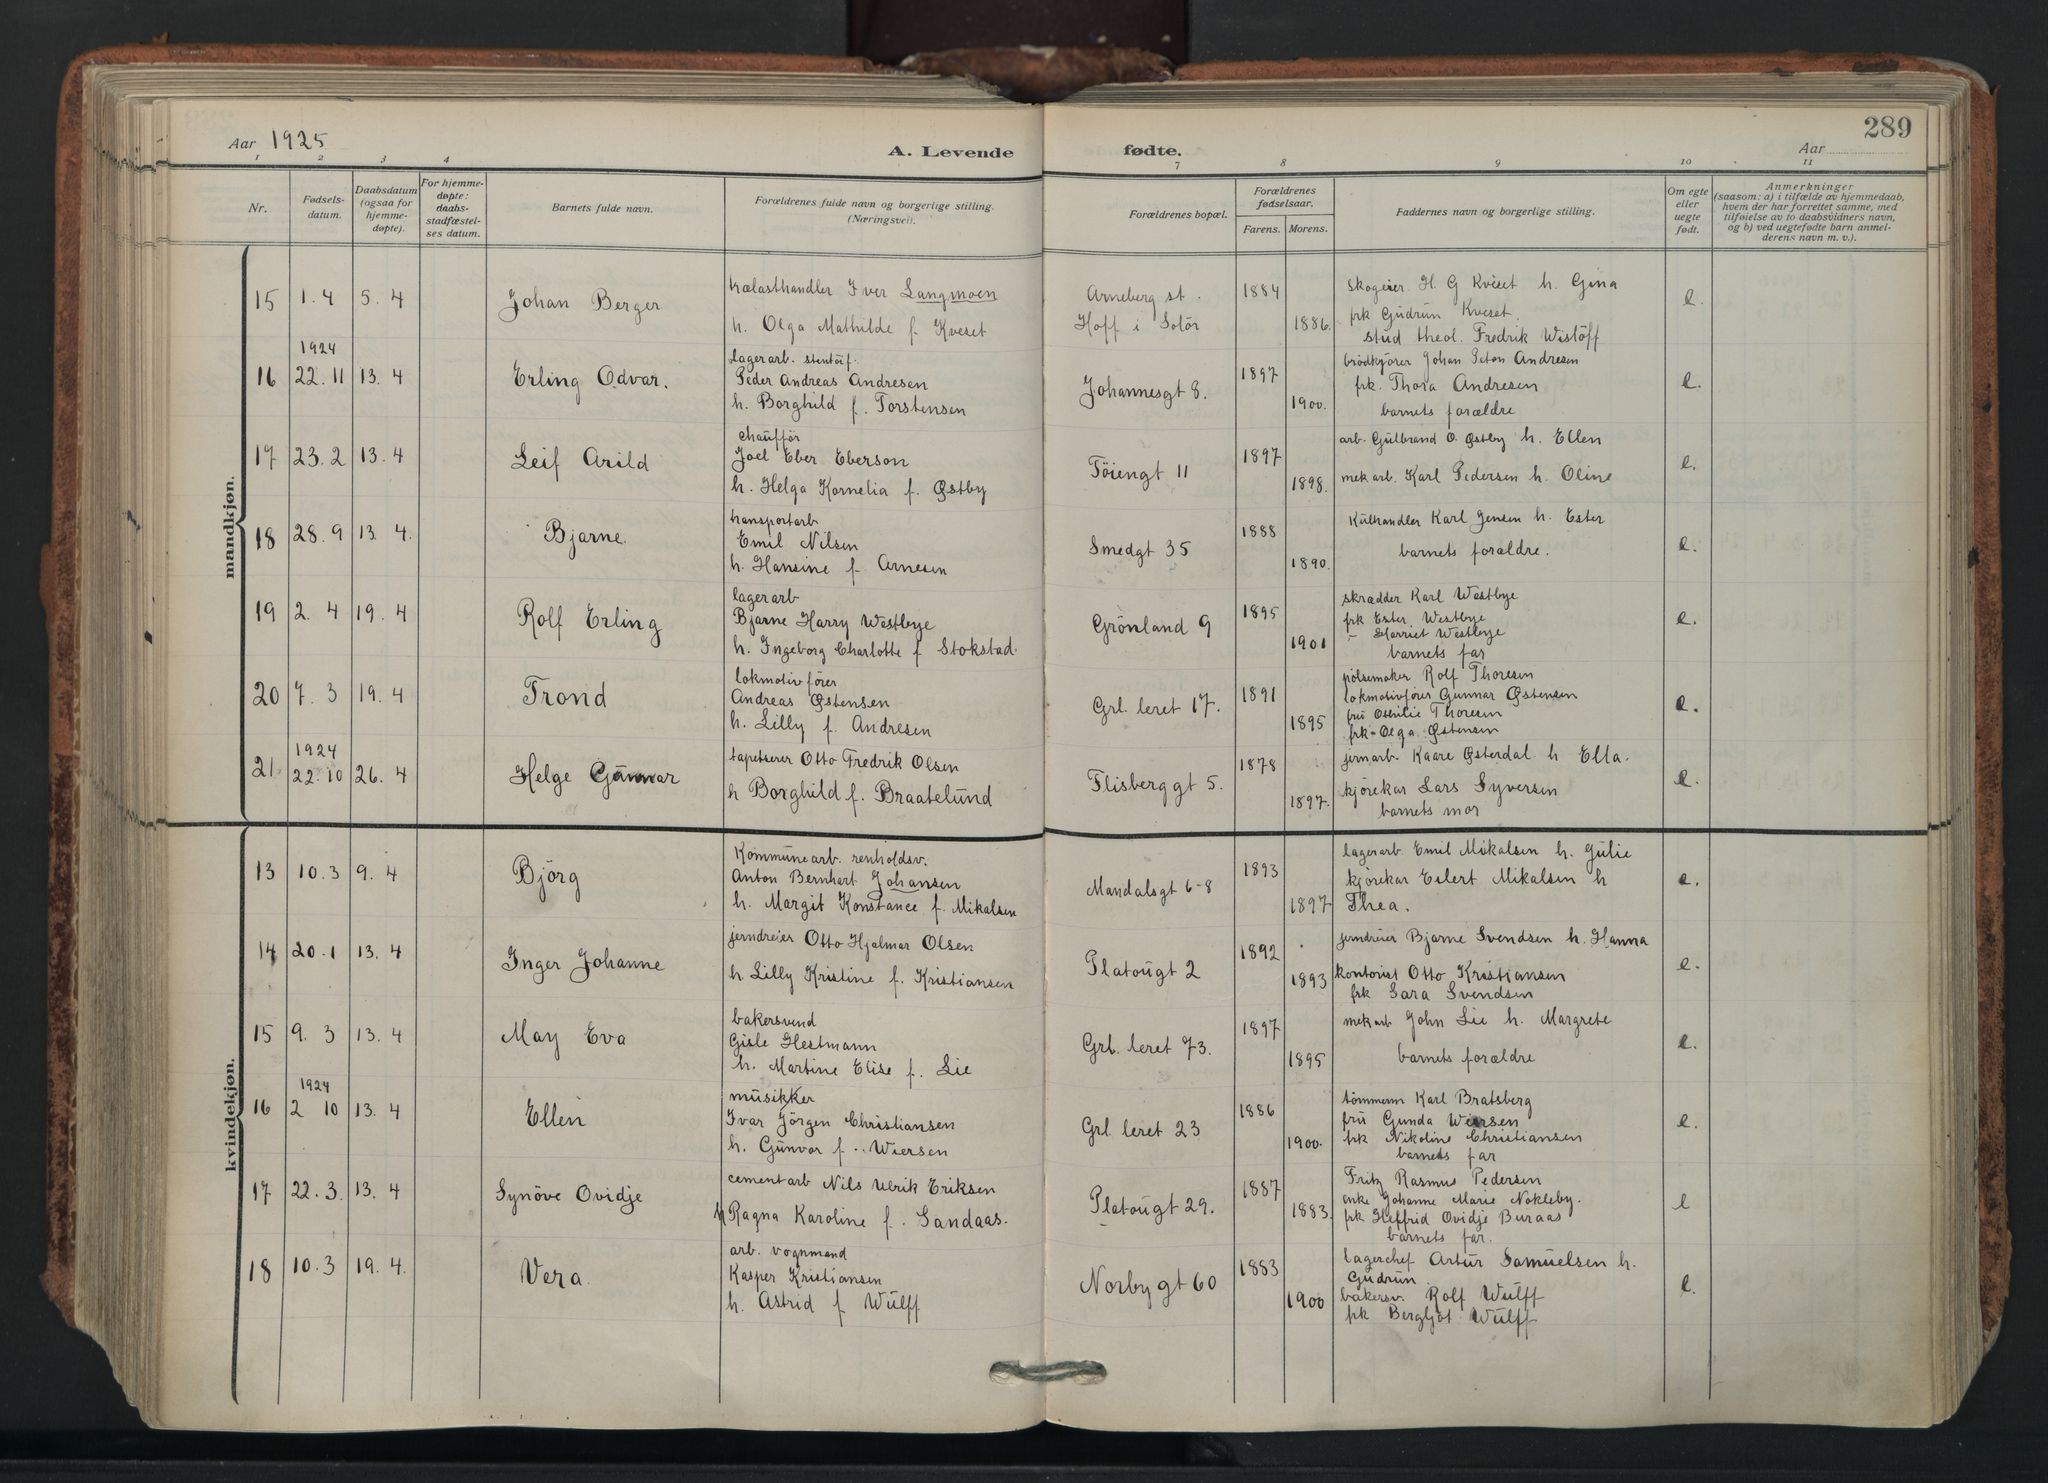 289
Aar 1925
A. Levende fødte.
Aar
1 2 3 4 7 8 9 10 11
Nr.
Fødsels-
datum.
Daabsdatum
(ogsaa for
hjemme-
døpte).
For hjemme-
døpte:
daabs-
stadfæstel-
ses datum.
Barnets fulde navn.
Forældrenes fulde navn og borgerlige stilling.
(Næringsvei).
Forældrenes bopæl.
Forældrenes
fødselsaar.
Farens. Morens.
Faddernes navn og borgerlige stilling.
Om egte
eller
uegte
født.
Anmerkninger
(saasom: a) i tilfælde av hjemmedaab,
hvem der har forrettet samme, med
tilføielse av to daabsvidners navn,
og b) ved uegtefødte barn anmel-
derens navn m. v.).
mandkjøn.
15 1.4 5.4 Johan Berger
trælasthandler Iver Langmoen
h. Olga Mathilde f. Kveset
Arneberg st.
Hoff i Solör
1884
1886.
skogeier H G Kveset h. Gina
frk Gudrun Kveset.
stud theol. Fredrik Wistöff
e.
1924
16 22.11 13.4 Erling Odvar.
lagerarb.
Peder Andreas Andresen
h. Borghild f. Torstensen
Johannesgt 8.
1897
1900.
brödkjörer Johan Andresen
frk. Thora Andresen
barnets forældre
e.
17 23.2 13.4 Leif Arild
chaufför
Joel Eber Eberson
h. Helga Kornelia f. Østby
Töiengt 11
1897
1898.
arb. Gulbrand O. Østby h. Ellen
mek arb. Karl Pedersen h. Oline
e.
18 28.9 13.4. Bjarne.
transportarb
Emil Nilsen
h. Hansine f. Arnesen
Smedgt 35
1888
1890.
Kulhandler Karl Jensen h. Ester
barnets forældre.
e.
19 2.4 19.4 Rolf Erling
lagerarb
Bjarne Harry Westbye
h. Ingeborg Charlotte f Stokstad.
Grönland 9
1895
1901
skrædder Karl Westbye
frk Ester Westbye
" Harriet Westbye
barnets far
e.
20 7.3 19.4 Trond
lokmotivfører
Andreas Østensen
h. Lilly f. Andresen
Grl. leret 17.
1891
1895
pölsemaker Rolf Thoresen
lokmotivfører Gunnar Østensen
fru Othilie Thoresen
frk. Olga Østensen
e.
1924
21 22.10 26.4 Helge Gunnar
tapetserer Otto Fredrik Olsen
h Borghild f. Braatelund
Flisberggt 5.
1878
1897.
jernarb. Kaare Østerdal h Ella.
kjörekar Lars Syversen
barnets mor
e.
kvindekjøn.
13 10.3 9.4 Björg
Kommunearb. renholdsv.
Anton Bernhart Johansen
h. Margit Konstance f. Mikalsen
Mandalsgt 6-8
1893
1897
lagerarb Emil Mikalsen h. Julie
kjörekar Eilert Mikalsen h
Thea.
e.
14 20.1 13.4 Inger Johanne
jerndreier Otto Hjalmar Olsen
h. Lilly Kristine f. Kristiansen
Platougt 2
1892
1893
jerndreier Bjarne Svendsen h. Hanna
kontorist Otto Kristiansen
frk Sara Svendsen
e.
15 9.3 13.4 May Eva
bakersvend
Gisle Hestmann
h. Martine Elise f. Lie
Grl. leret 73.
1897
1895
mek arb John Lie h. Margrete
barnets forældre
e.
1924
16 2 10 13.4 Ellen
musikker
Ivar Jörgen Christiansen
h. Gunvor f. Wiersen
Grl. leret 23
1886
1900.
tömmerm Karl Bratsberg
fru Gunda Wiersen
frk Nikoline Christiansen
barnets far
e.
17 22.3. 13.4 Synöve Ovidje
cementarb Nils Ulrik Eriksen
h Ragna Karoline f. Sandaas.
Platougt 29.
1887
1883.
Fritz Rasmus Pedersen
enke Johanne Marie Nokleby.
frk Ovidje Buraas
barnets far.
e
18 10.3 19.4. Vera.
arb. vognmand
Kasper Kristiansen
h. Astrid f Wulff
Norbygt 60
1883
1900
lagerchef Artur Samuelsen h.
Gudrun
bakersv. Rolf Wulff
frk Bergljot Wulff
e.